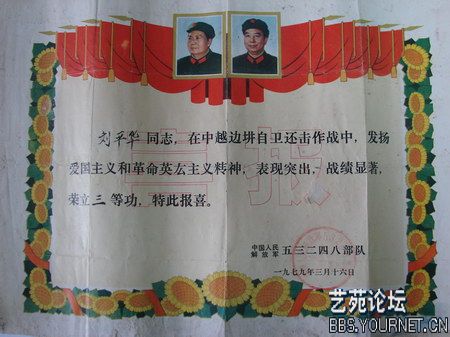 喜报
刘平华同志，在中越边境自卫还击作战中，发扬
爱国主义和革命英厷主义精神，表现突出，战绩显著，
荣立三等功，特此报喜。
中国人民
解放军 五三二四八部队
一九七九年三月十六日
艺苑论坛
BBS.YOURNET.CN